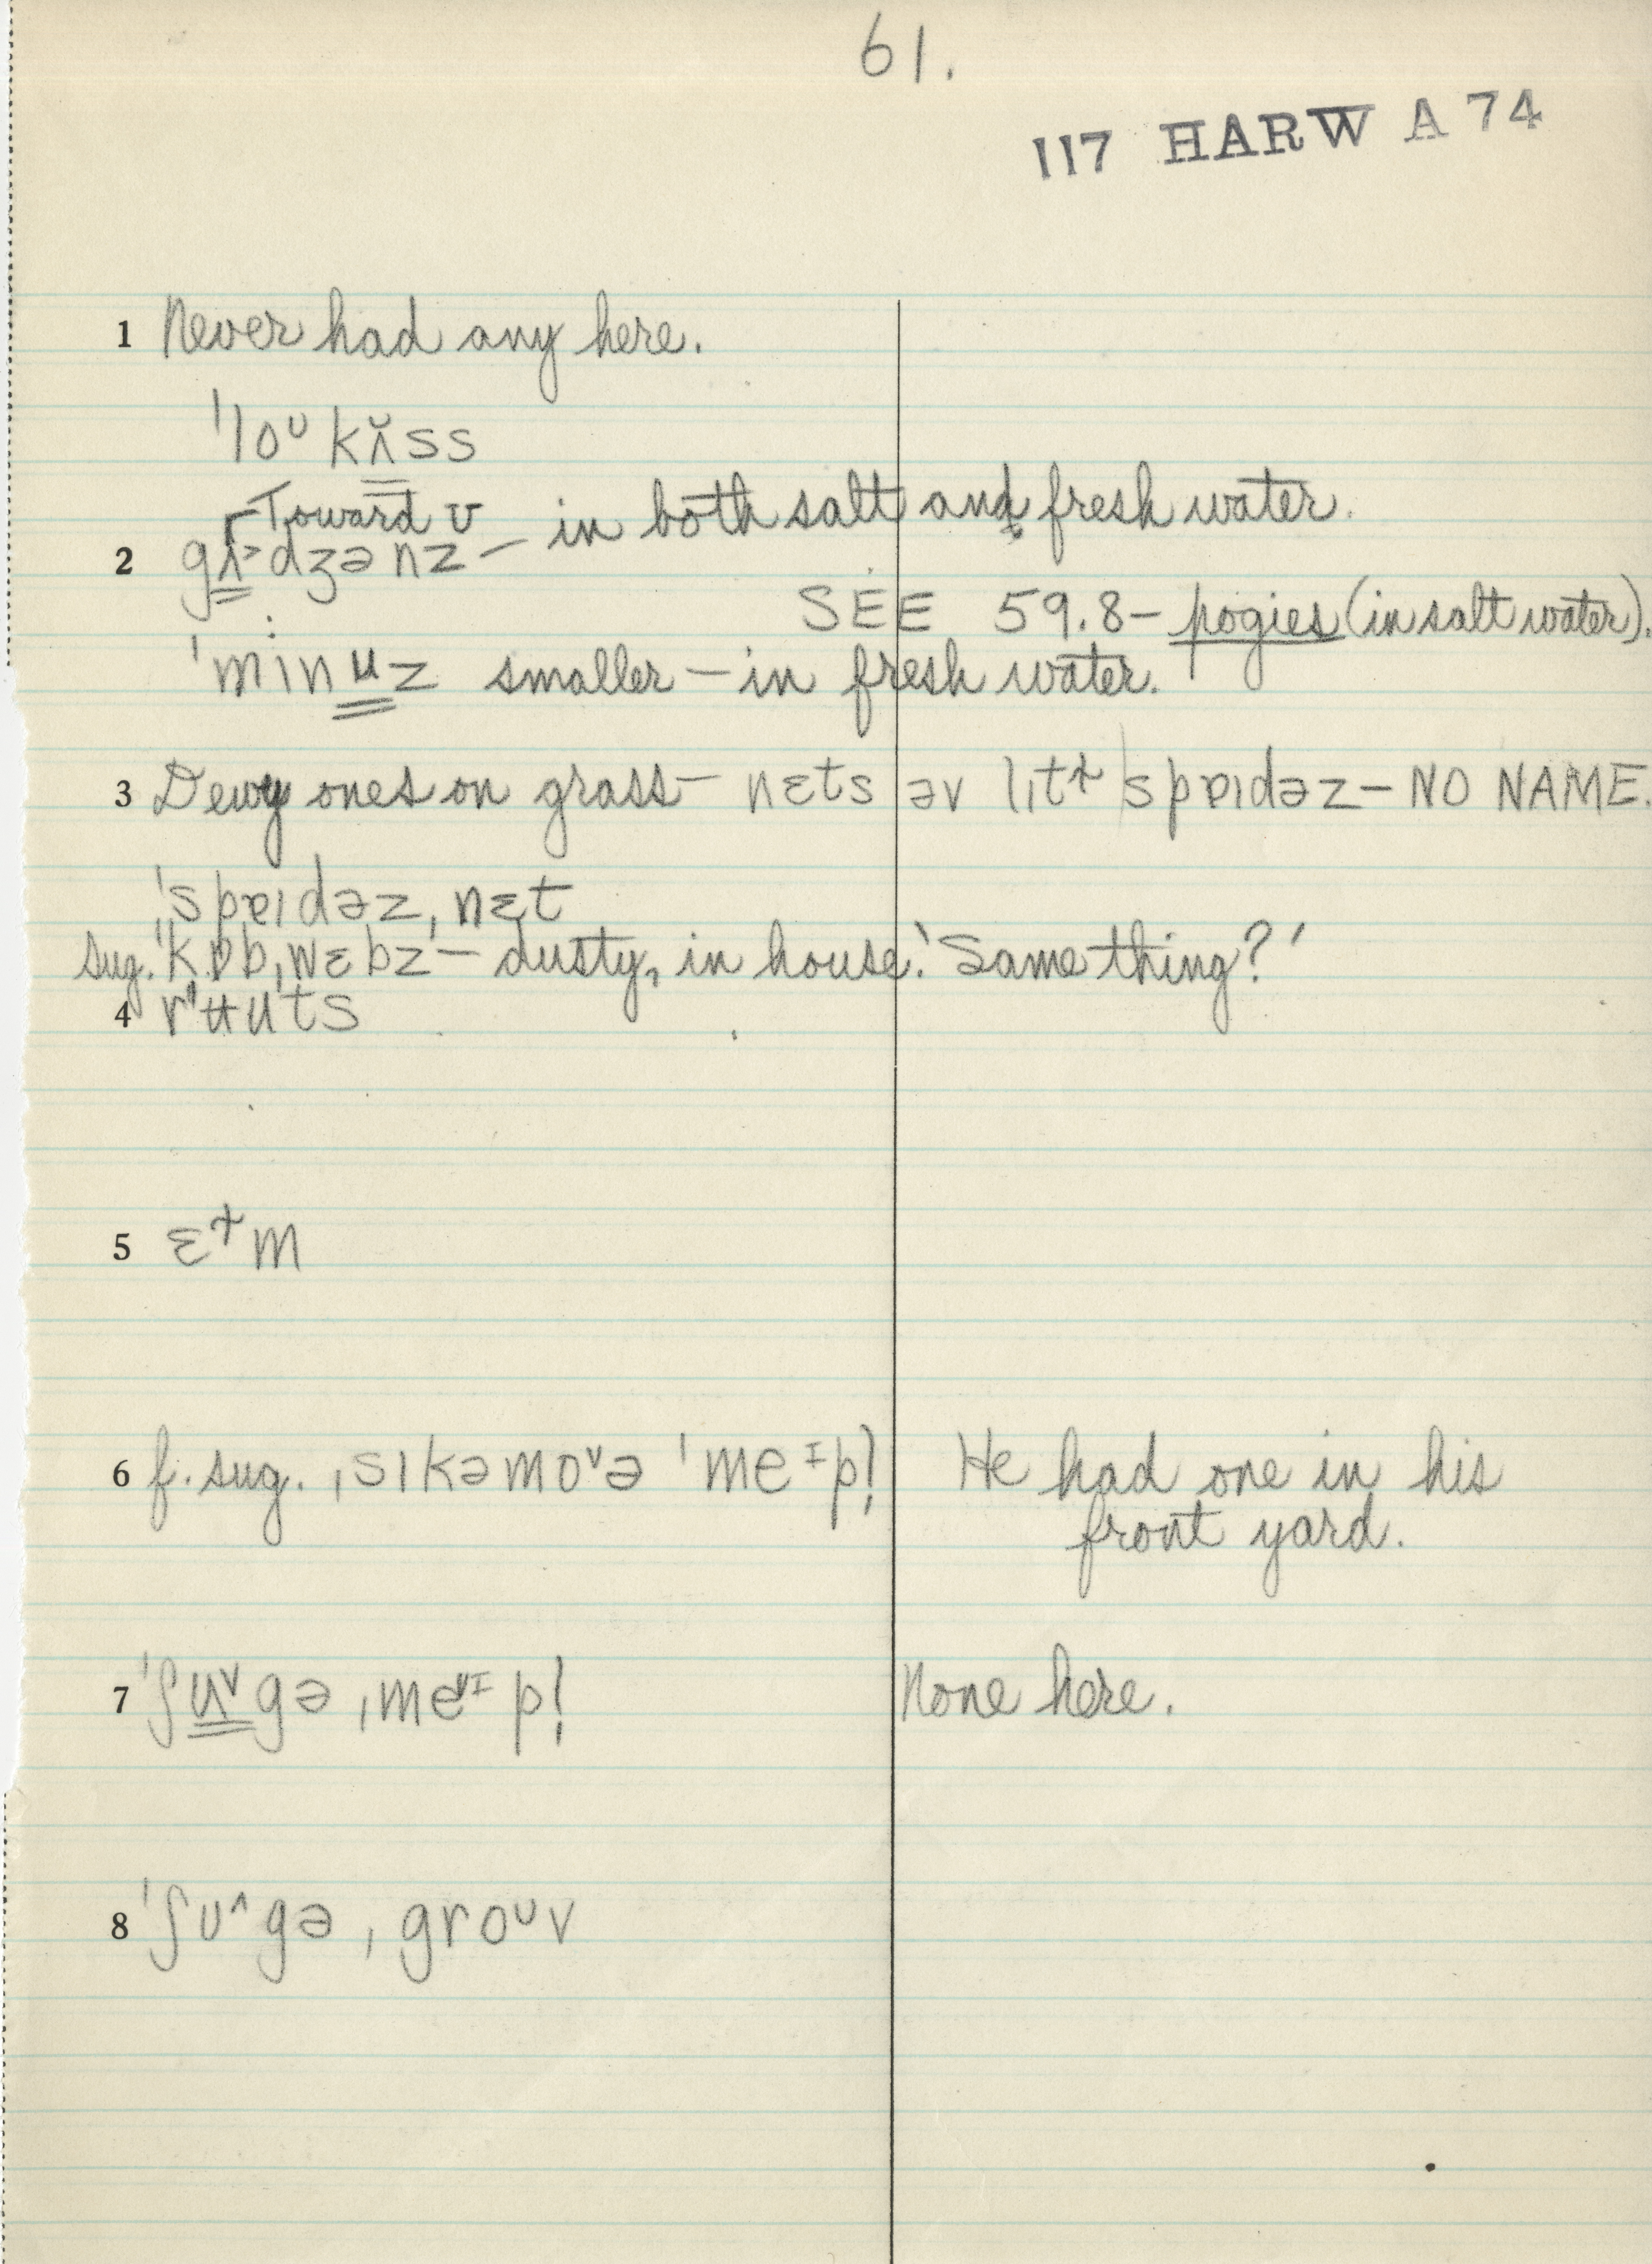 61.
117 HARW A 74
1 Never had any here.
ˈloᴜ kʌ̆ss
Toward ʊ
2 gʌ˃dʒənz – in both salt and fresh water.
SEE 59.8 – pogies (in salt water).
ˈminʉz smaller – in fresh water.
3 Dewy ones on grass – nɛts əv lɪtɫ ˈspɐɪdəz – NO NAME.
ˈspɐɪdəzˌnɛt
sug. ˈkɒbˌwɛbz – dusty, in house. ‘Same thing?’
4 rʉuts
5 ɛɫm
6 f. sug. ˌsɪkəmo˅ə ˈmeɪpl̩ He had one in his
front yard.
7 ˈʃʊ˅gəˌme˅ɪpl̩ None here.
8 ˈʃʊ˄gəˌgroᴜv